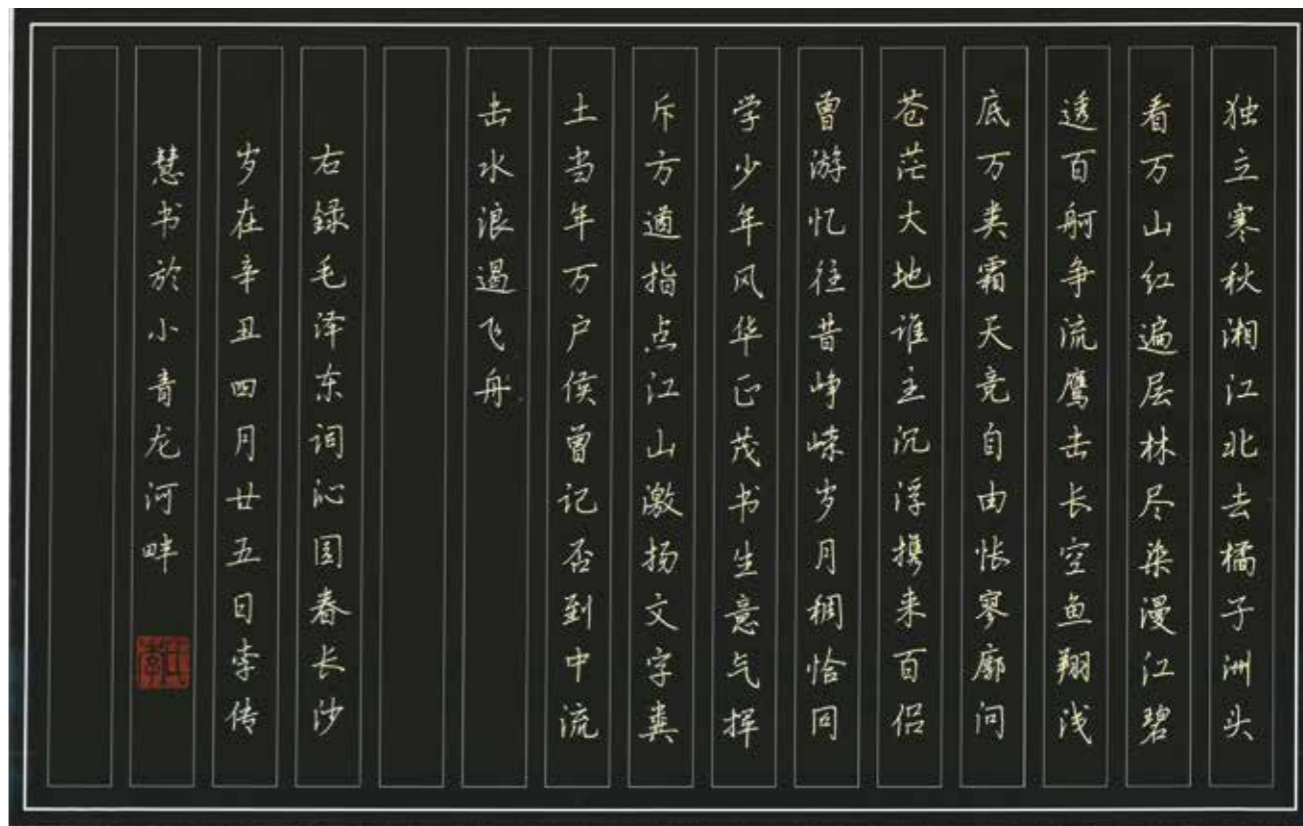 独立寒秋湘江北去橘子洲头
看万山红遍层林尽染漫江碧
透百舸争流鹰击长空鱼翔浅
底万类霜天竞自由怅寥廓问
苍茫大地谁主沉浮携来百侣
曾游忆往昔峥嵘岁月稠恰同
学少年风华正茂书生意气挥
斥方遒指点江山激扬文字粪
土当年万户侯曾记否到中流
击水浪遏飞舟
右録毛泽东词沁园春长沙
岁在辛丑四月廿五日李传
慧书於小青龙河畔